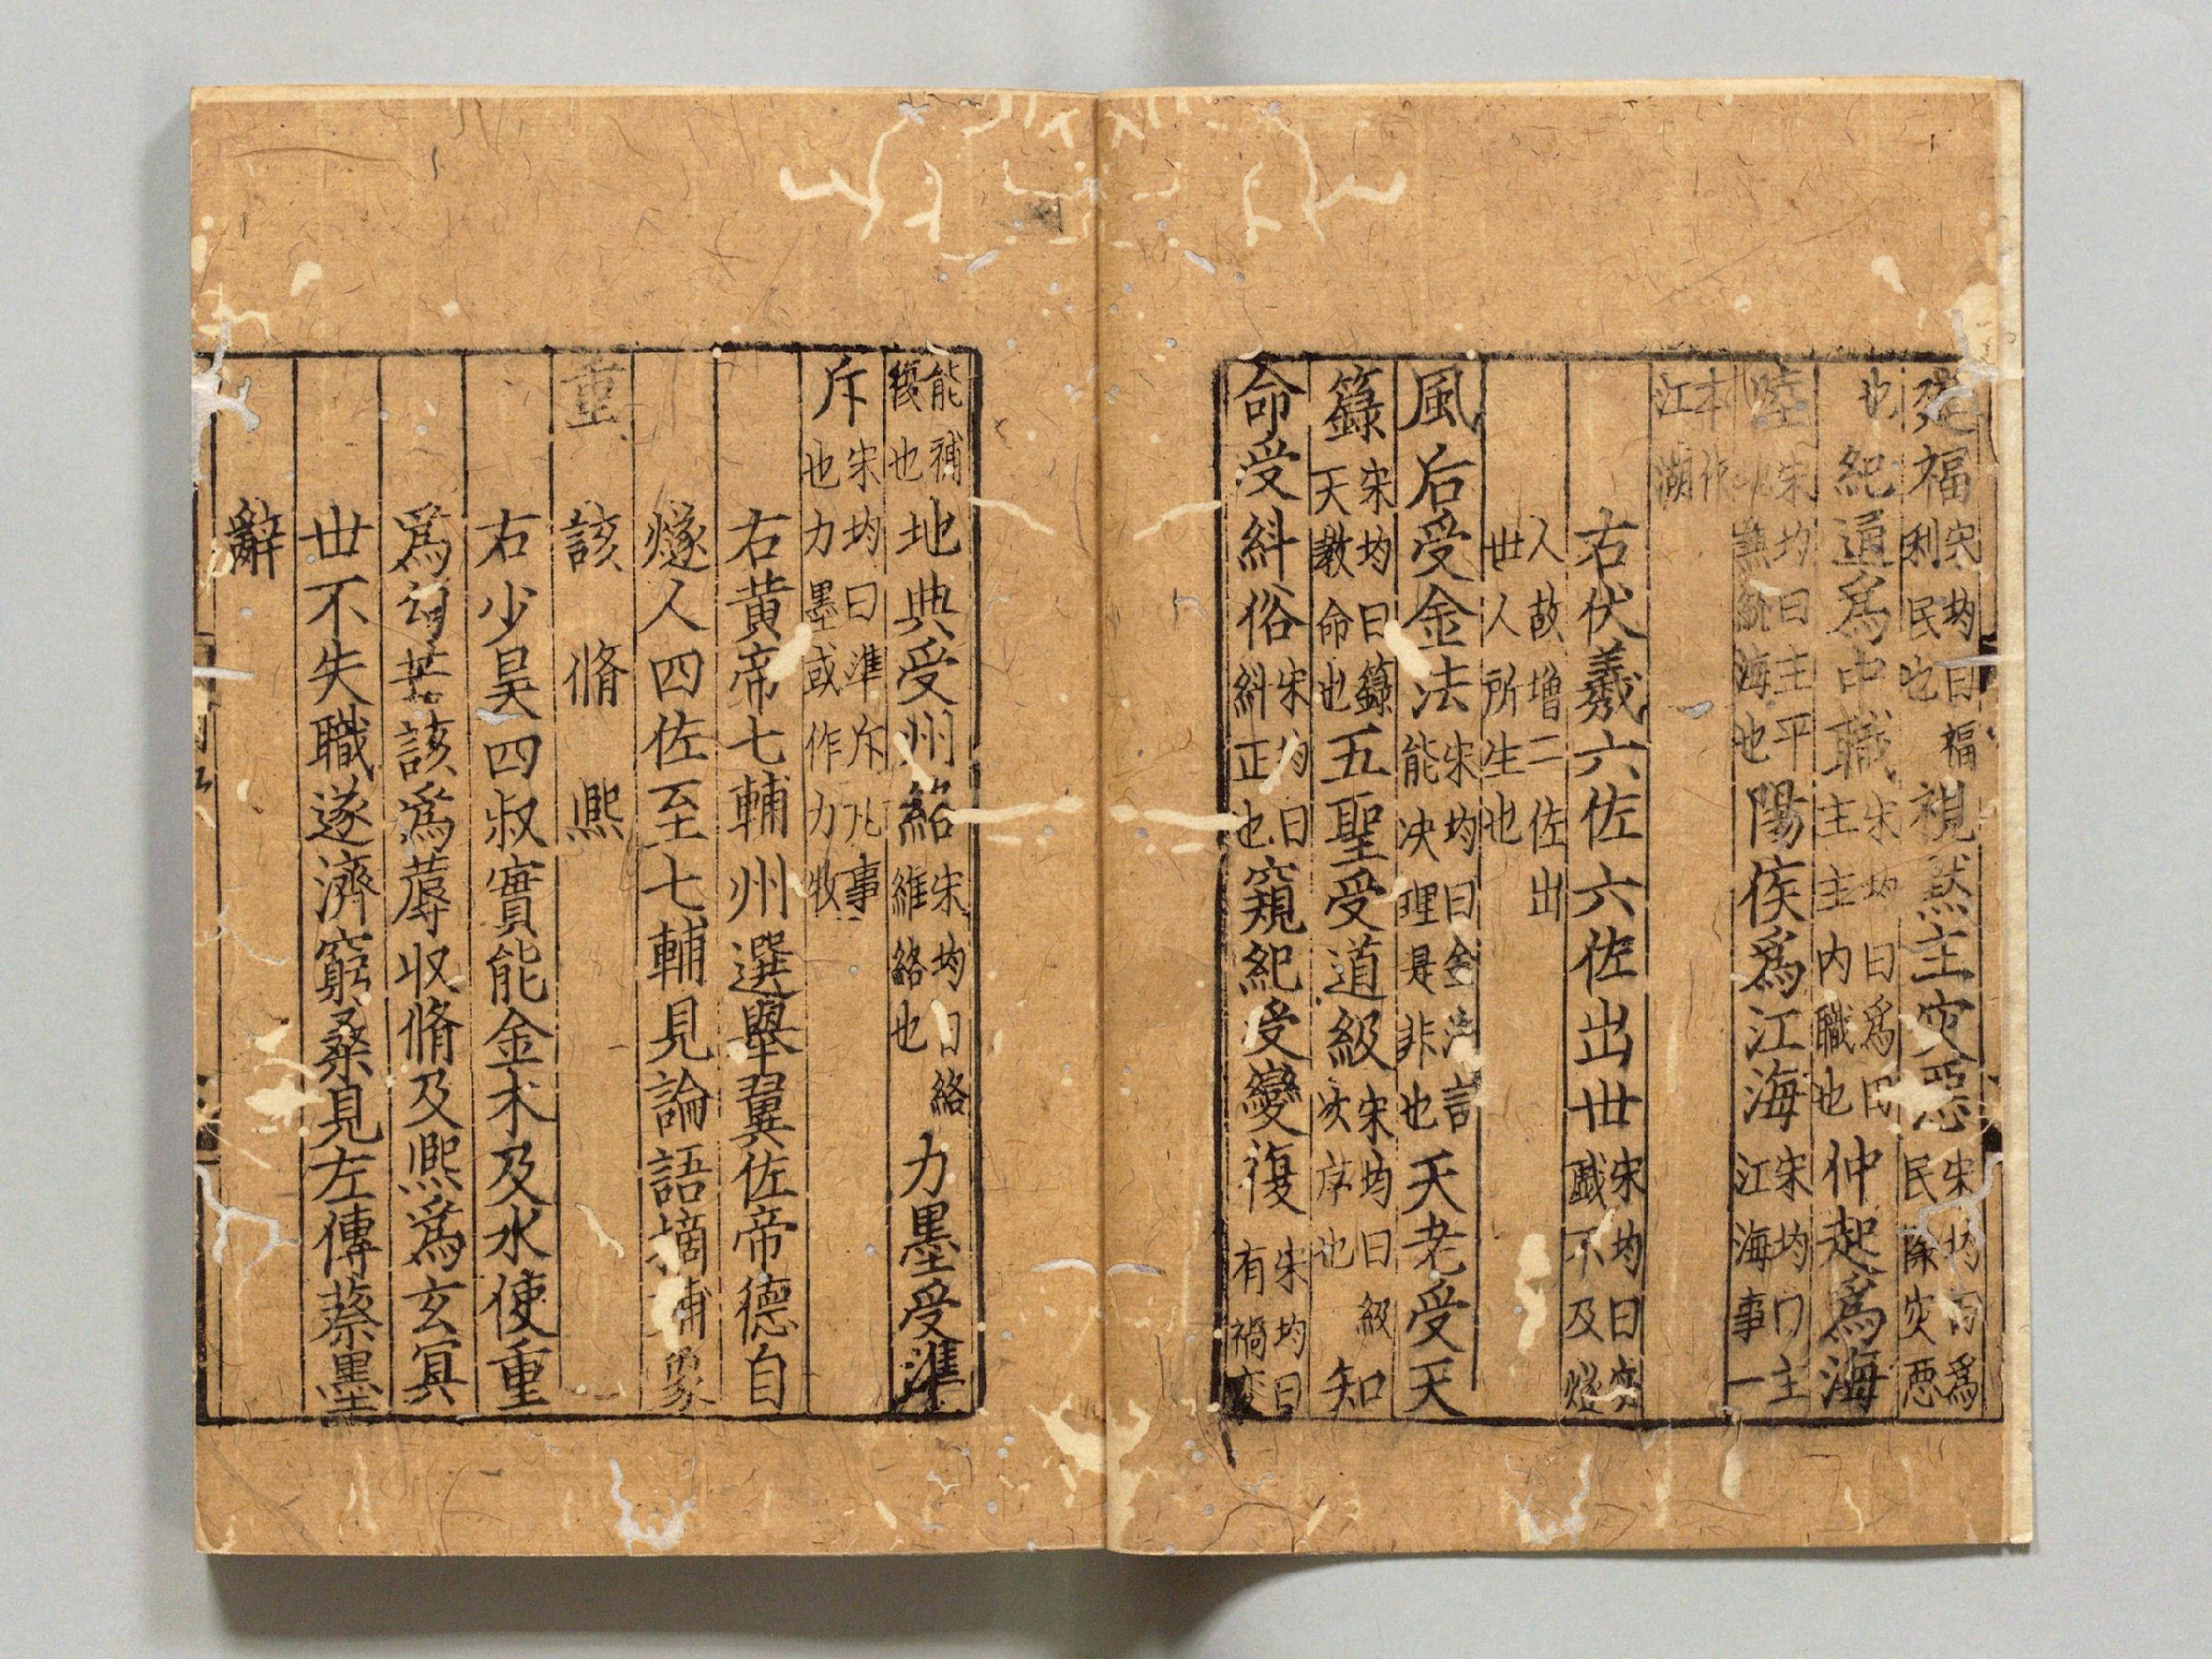 建福宋均曰福利民也視黙主災惡宋均曰爲民除灾惡
也紀通爲中職宋均曰爲田主主内職也仲起爲海
陸宋均曰主平海也陽侯爲江海宋均曰主江海事一
本作江湖
右伏羲六佐六佐出世宋均曰戯不及燧
人故增二佐出世人所生也
風后受金法宋均曰金法言能决理是非也天老受天
籙宋均曰籙天教命也五聖受道級宋均曰級次序也知
命受糾俗宋均曰糾正也窺紀受變復宋均曰有禍变
能補復也地典受州絡宋均曰絡維絡也力墨受準
斥宋均曰準斥凡事也力墨或作力牧
右黄帝七輔州選舉翼佐帝德自
燧人四佐至七輔見論語摘輔象
重該脩熈
右少昊四叔實能金木及水使重
爲句芒該爲蓐收脩及熈爲玄冥
世不失職遂濟窮桑見左傳蔡墨
辭